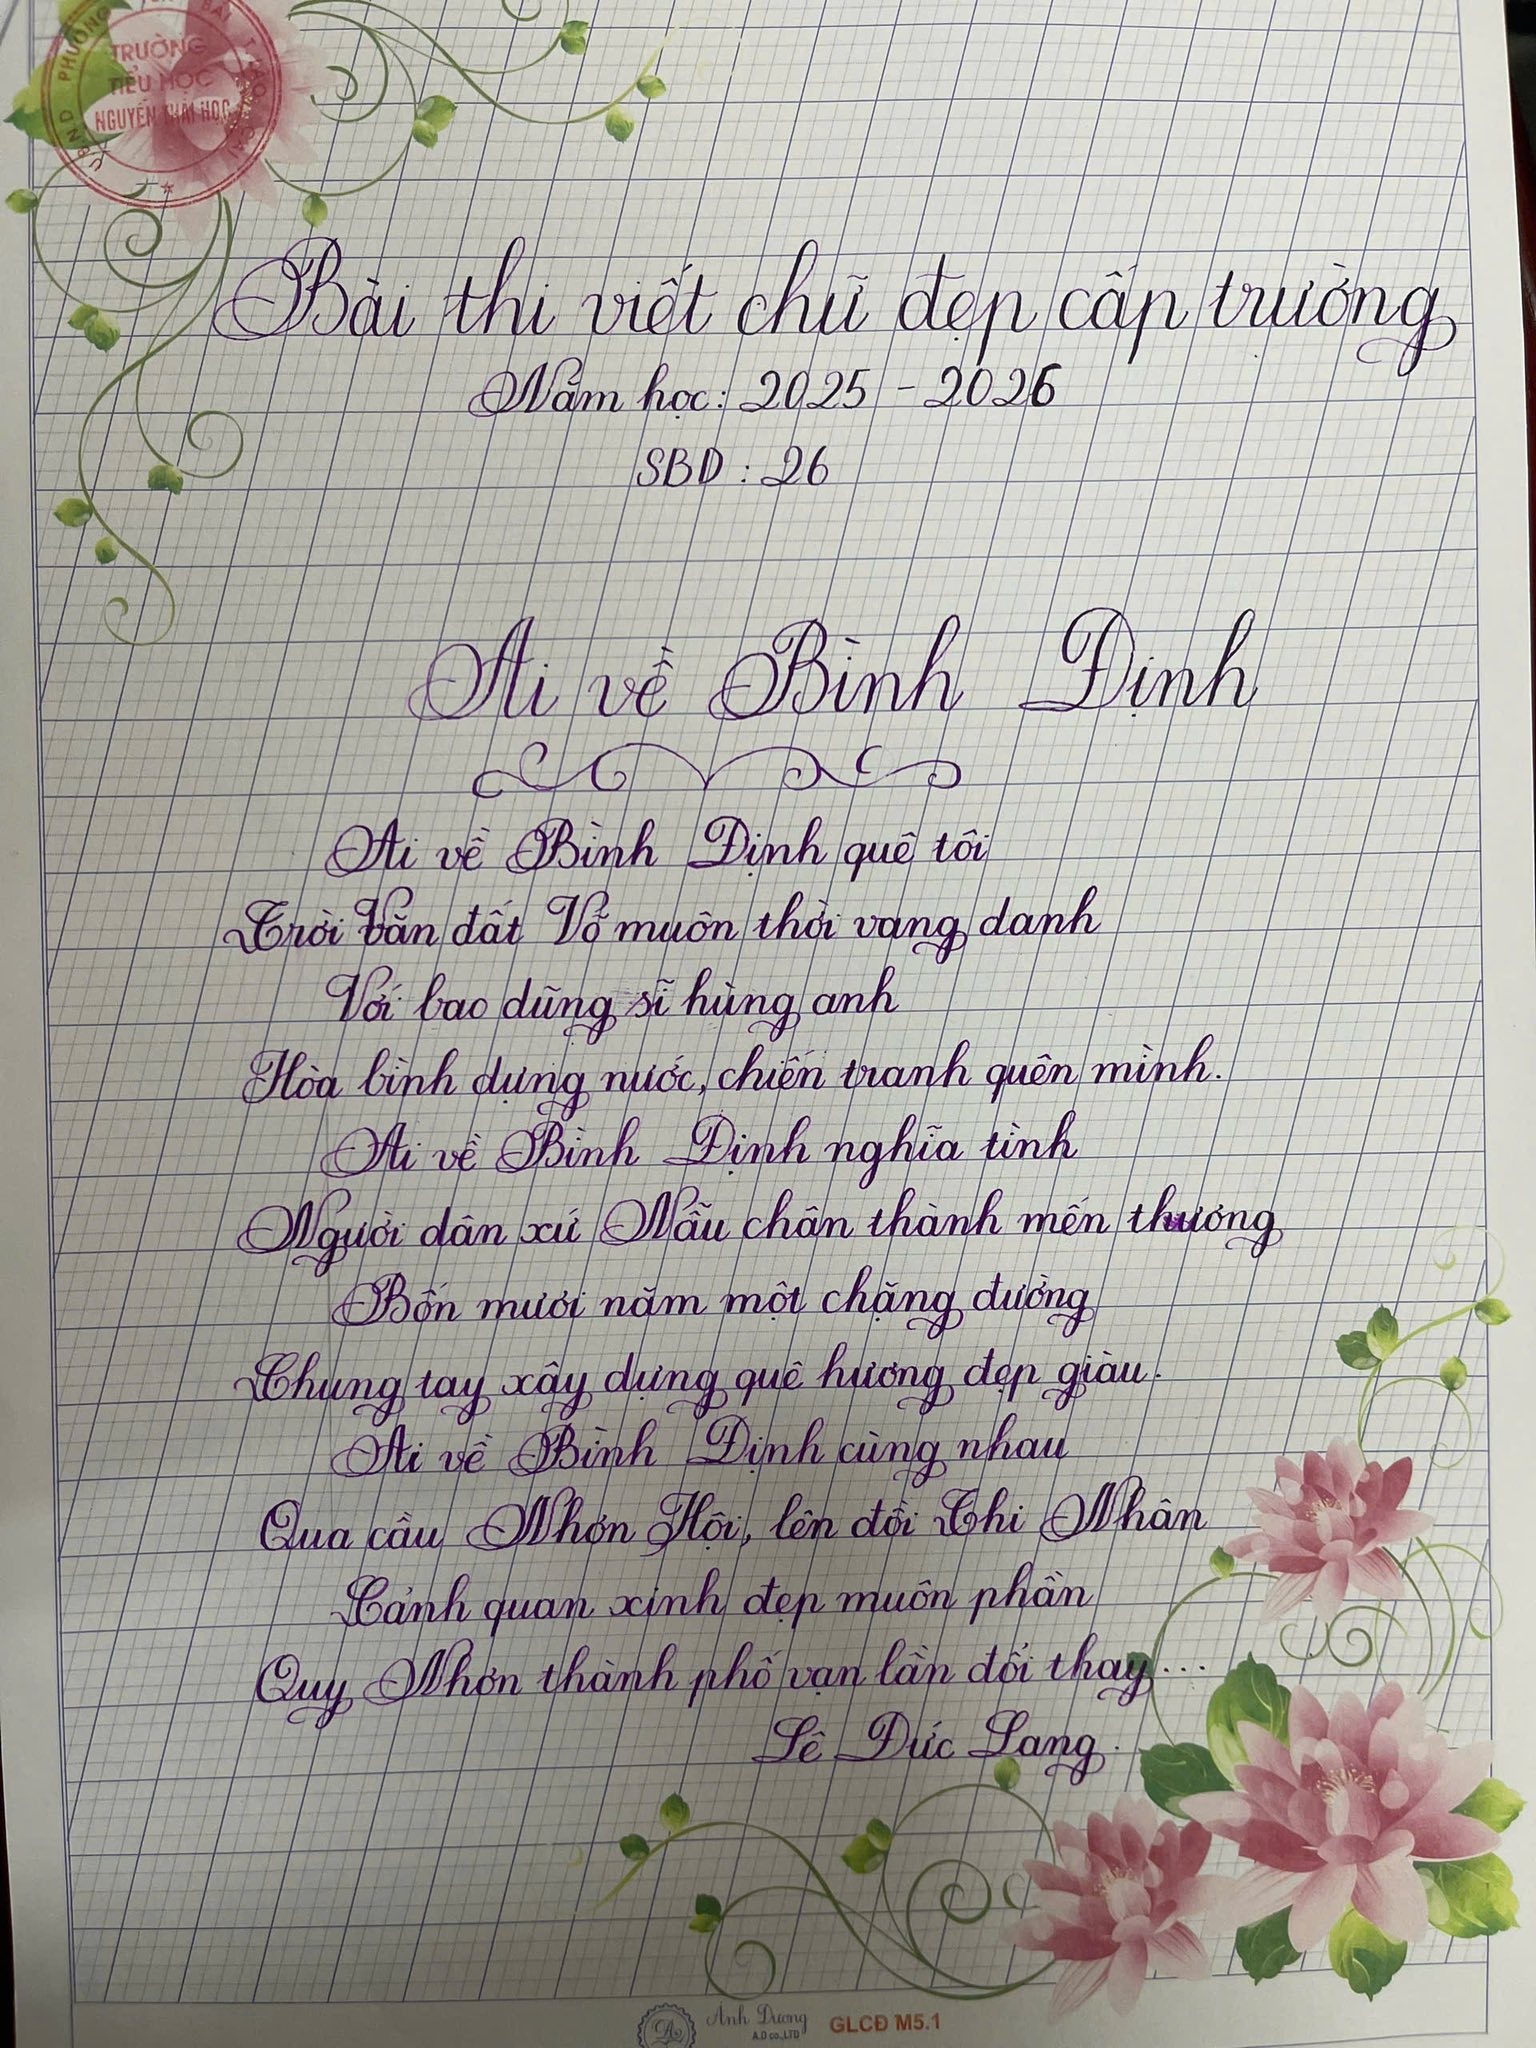 TRƯỜNG
TIỂU HỌC
NGUYỄN THÁI HỌC
Bài thi viết chữ đẹp cấp trường
Năm học: 2025 - 2026
SBD : 26
Ai về Bình Định
Ai về Bình Định quê tôi
Trời Văn đất Võ muôn thời vang danh
Với bao dũng sĩ hùng anh
Hòa bình dựng nước, chiến tranh quên mình.
Ai về Bình Định nghĩa tình
Người dân xứ Nẫu chân thành mến thương
Bốn mươi năm một chặng đường
Chung tay xây dựng quê hương đẹp giàu.
Ai về Bình Định cùng nhau
Qua cầu Nhơn Hội, lên đồi Thi Nhân
Cảnh quan xinh đẹp muôn phần
Quy Nhơn thành phố vạn lần đổi thay...
Lê Đức Lang.
Anh Dương
A.D co.,LTD
GLCĐ M5.1